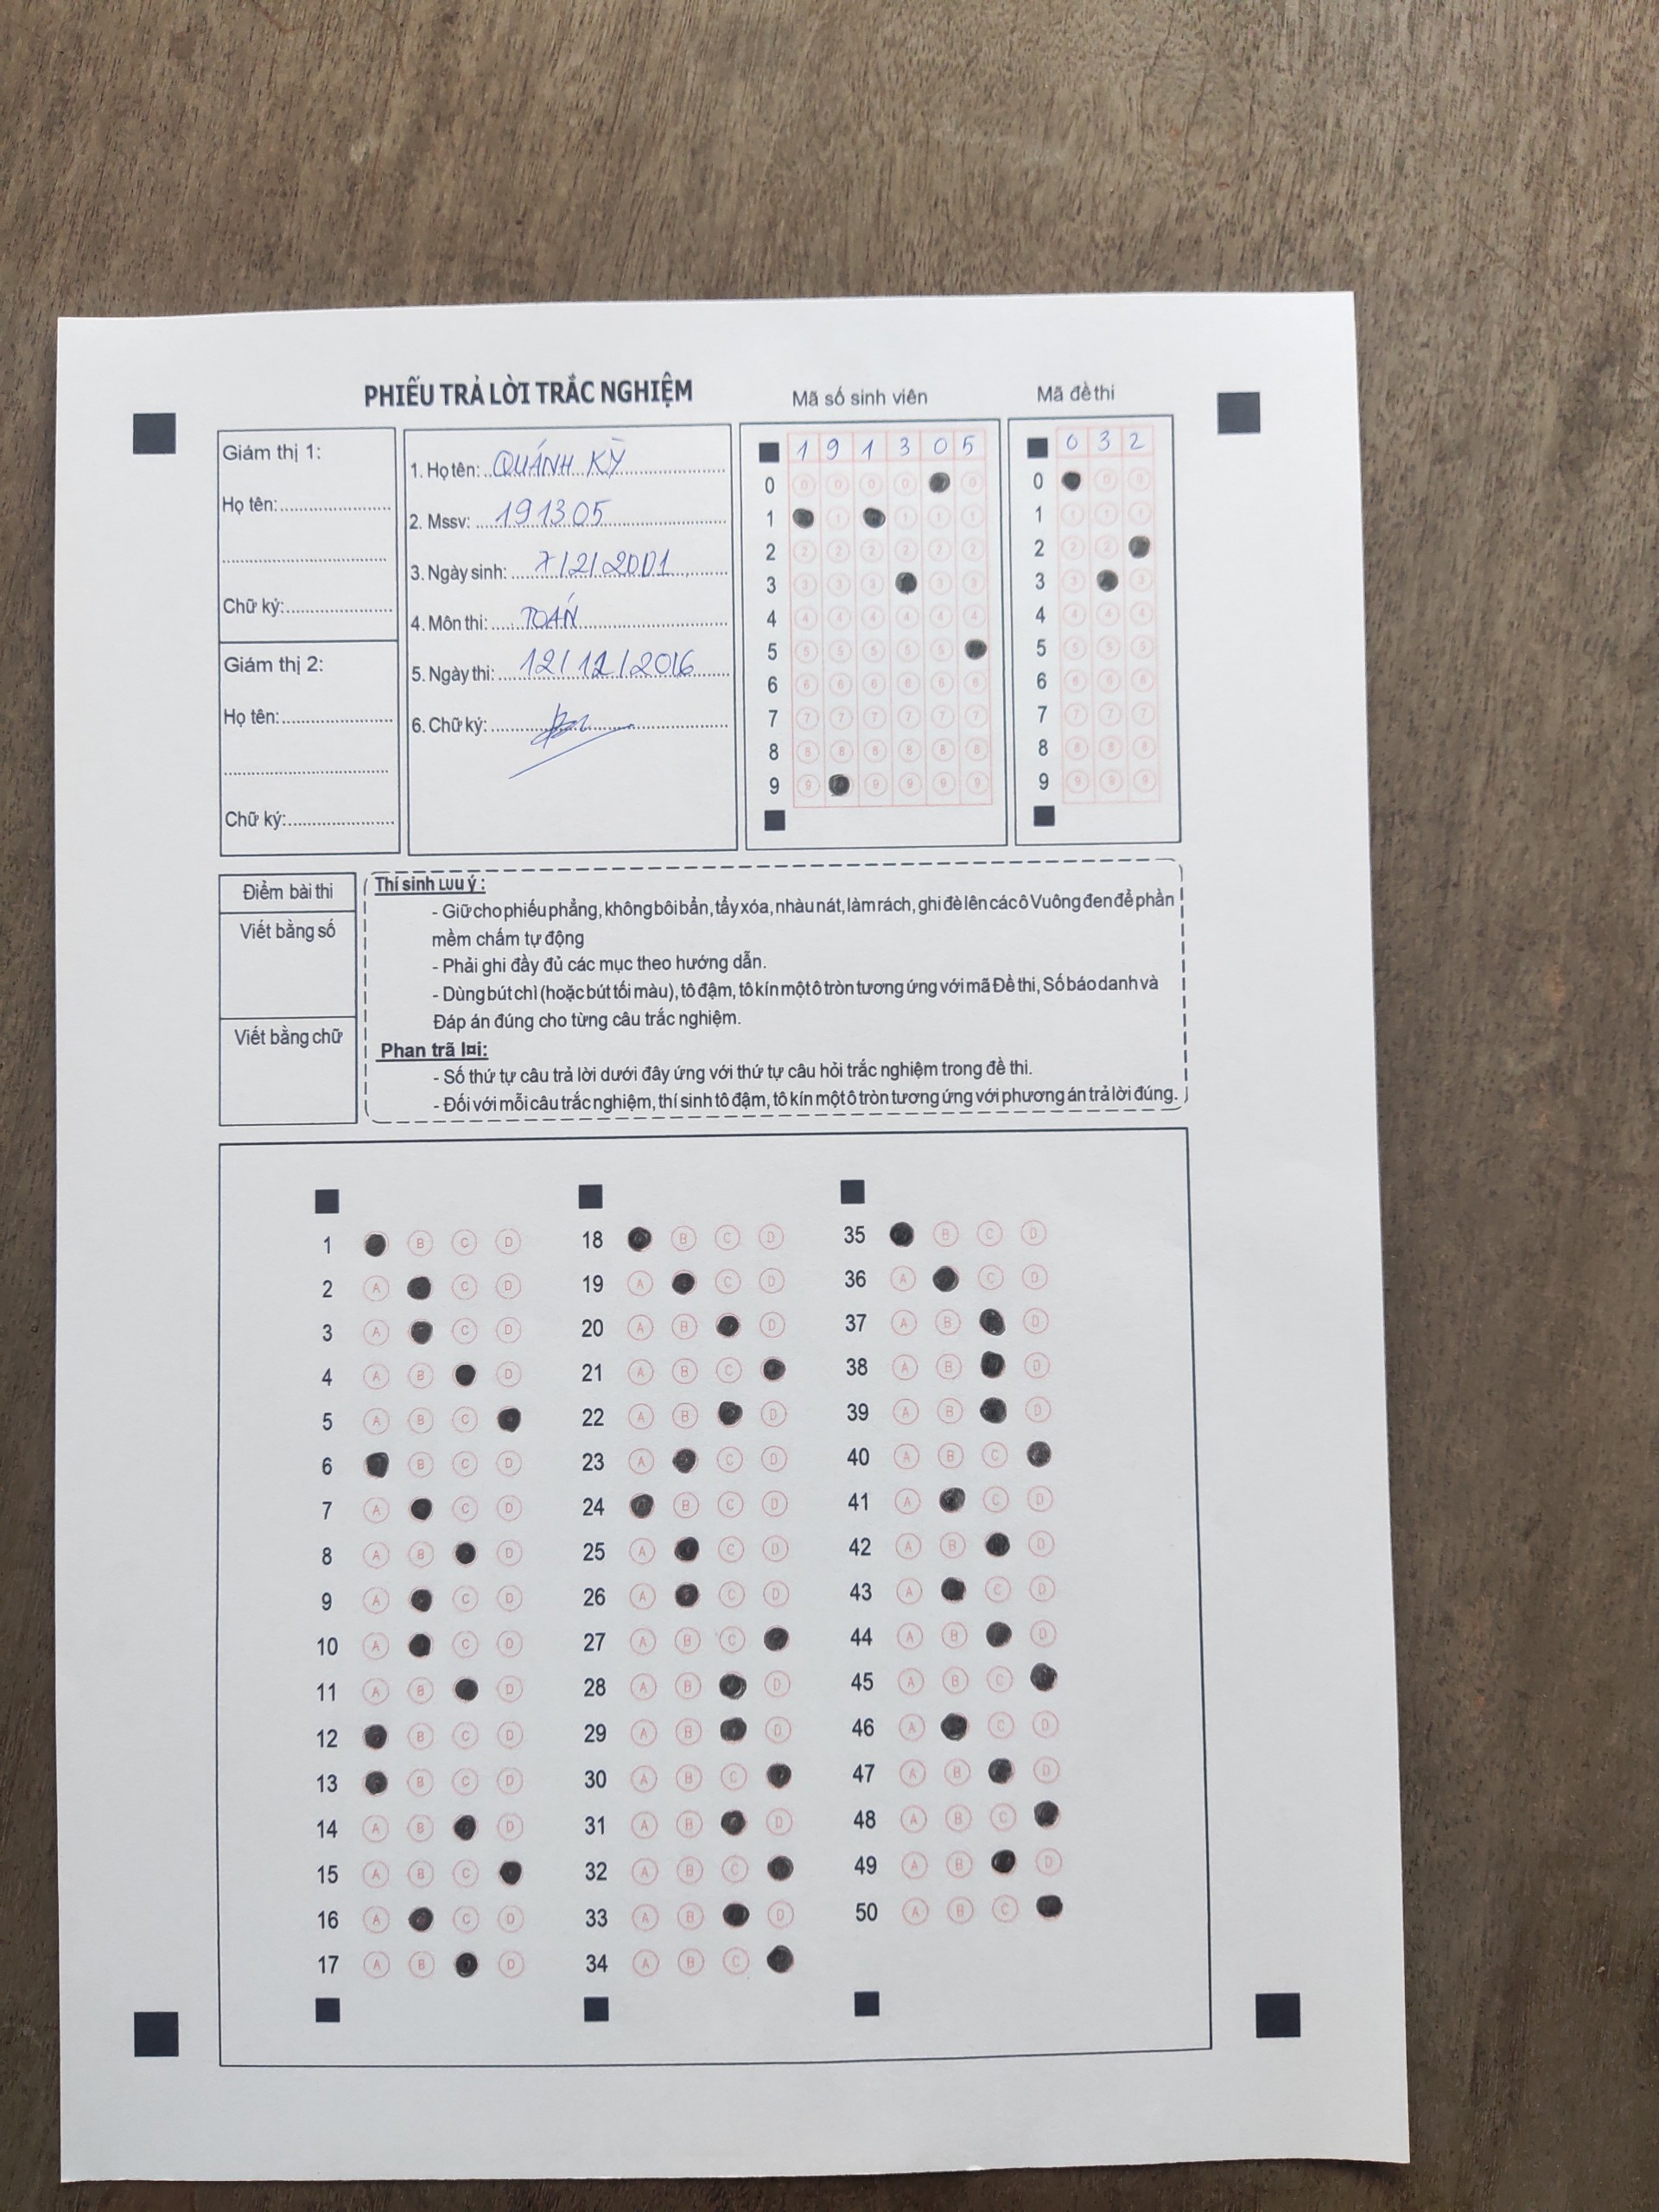 PHIẾU TRẢ LỜI TRẮC NGHIỆM
Mã số sinh viên
Mã đề thi
Giám thị 1:
Họ tên:
Chữ ký:
Giám thị 2:
Họ tên:
Chữ ký:
1. Họ tên: QUÁNH KỲ
2. Mssv: 191305
3. Ngày sinh: 7/2/2001
4. Môn thi: TOÁN
5. Ngày thi: 12/12/2016
6. Chữ ký:
1 9 1 3 0 5
0 0 0 0 0
1 1 1 1 1
2 2 2 2 2 2 2
3 3 3 3 3 3
4 4 4 4 4 4 4
5 5 5 5 5 5
6 6 6 6 6 6 6
7 7 7 7 7 7 7
8 8 8 8 8 8 8
9 9 9 9 9 9
0 3 2
0 0 0
1 1 1 1
2 2 2
3 3 3
4 4 4 4
5 5 5 5
6 6 6 6
7 7 7 7
8 8 8 8
9 9 9 9
Điểm bài thi
Viết bằng số
Viết bằng chữ
Thí sinh Lưu ý :
- Giữ cho phiếu phẳng, không bôi bẩn, tẩy xóa, nhàu nát, làm rách, ghi đè lên các ô Vuông đen để phần
mềm chấm tự động
- Phải ghi đầy đủ các mục theo hướng dẫn.
- Dùng bút chì (hoặc bút tối màu), tô đậm, tô kín một ô tròn tương ứng với mã Đề thi, Số báo danh và
Đáp án đúng cho từng câu trắc nghiệm.
Phan trã l¤i:
- Số thứ tự câu trả lời dưới đây ứng với thứ tự câu hỏi trắc nghiệm trong đề thi.
- Đối với mỗi câu trắc nghiệm, thí sinh tô đậm, tô kín một ô tròn tương ứng với phương án trả lời đúng.
1 B C D
2 A C D
3 A C D
4 A B D
5 A B C
6 B C D
7 A C D
8 A B D
9 A C D
10 A C D
11 A B D
12 B C D
13 B C D
14 A B D
15 A B C
16 A C D
17 A B D
18 B C D
19 A C D
20 A B D
21 A B C
22 A B D
23 A C D
24 B C D
25 A C D
26 A C D
27 A B C
28 A B D
29 A B D
30 A B C
31 A B D
32 A B C
33 A B D
34 A B C
35 B C D
36 A C D
37 A B D
38 A B D
39 A B D
40 A B C
41 A C D
42 A B D
43 A C D
44 A B D
45 A B C
46 A C D
47 A B D
48 A B C
49 A B D
50 A B C